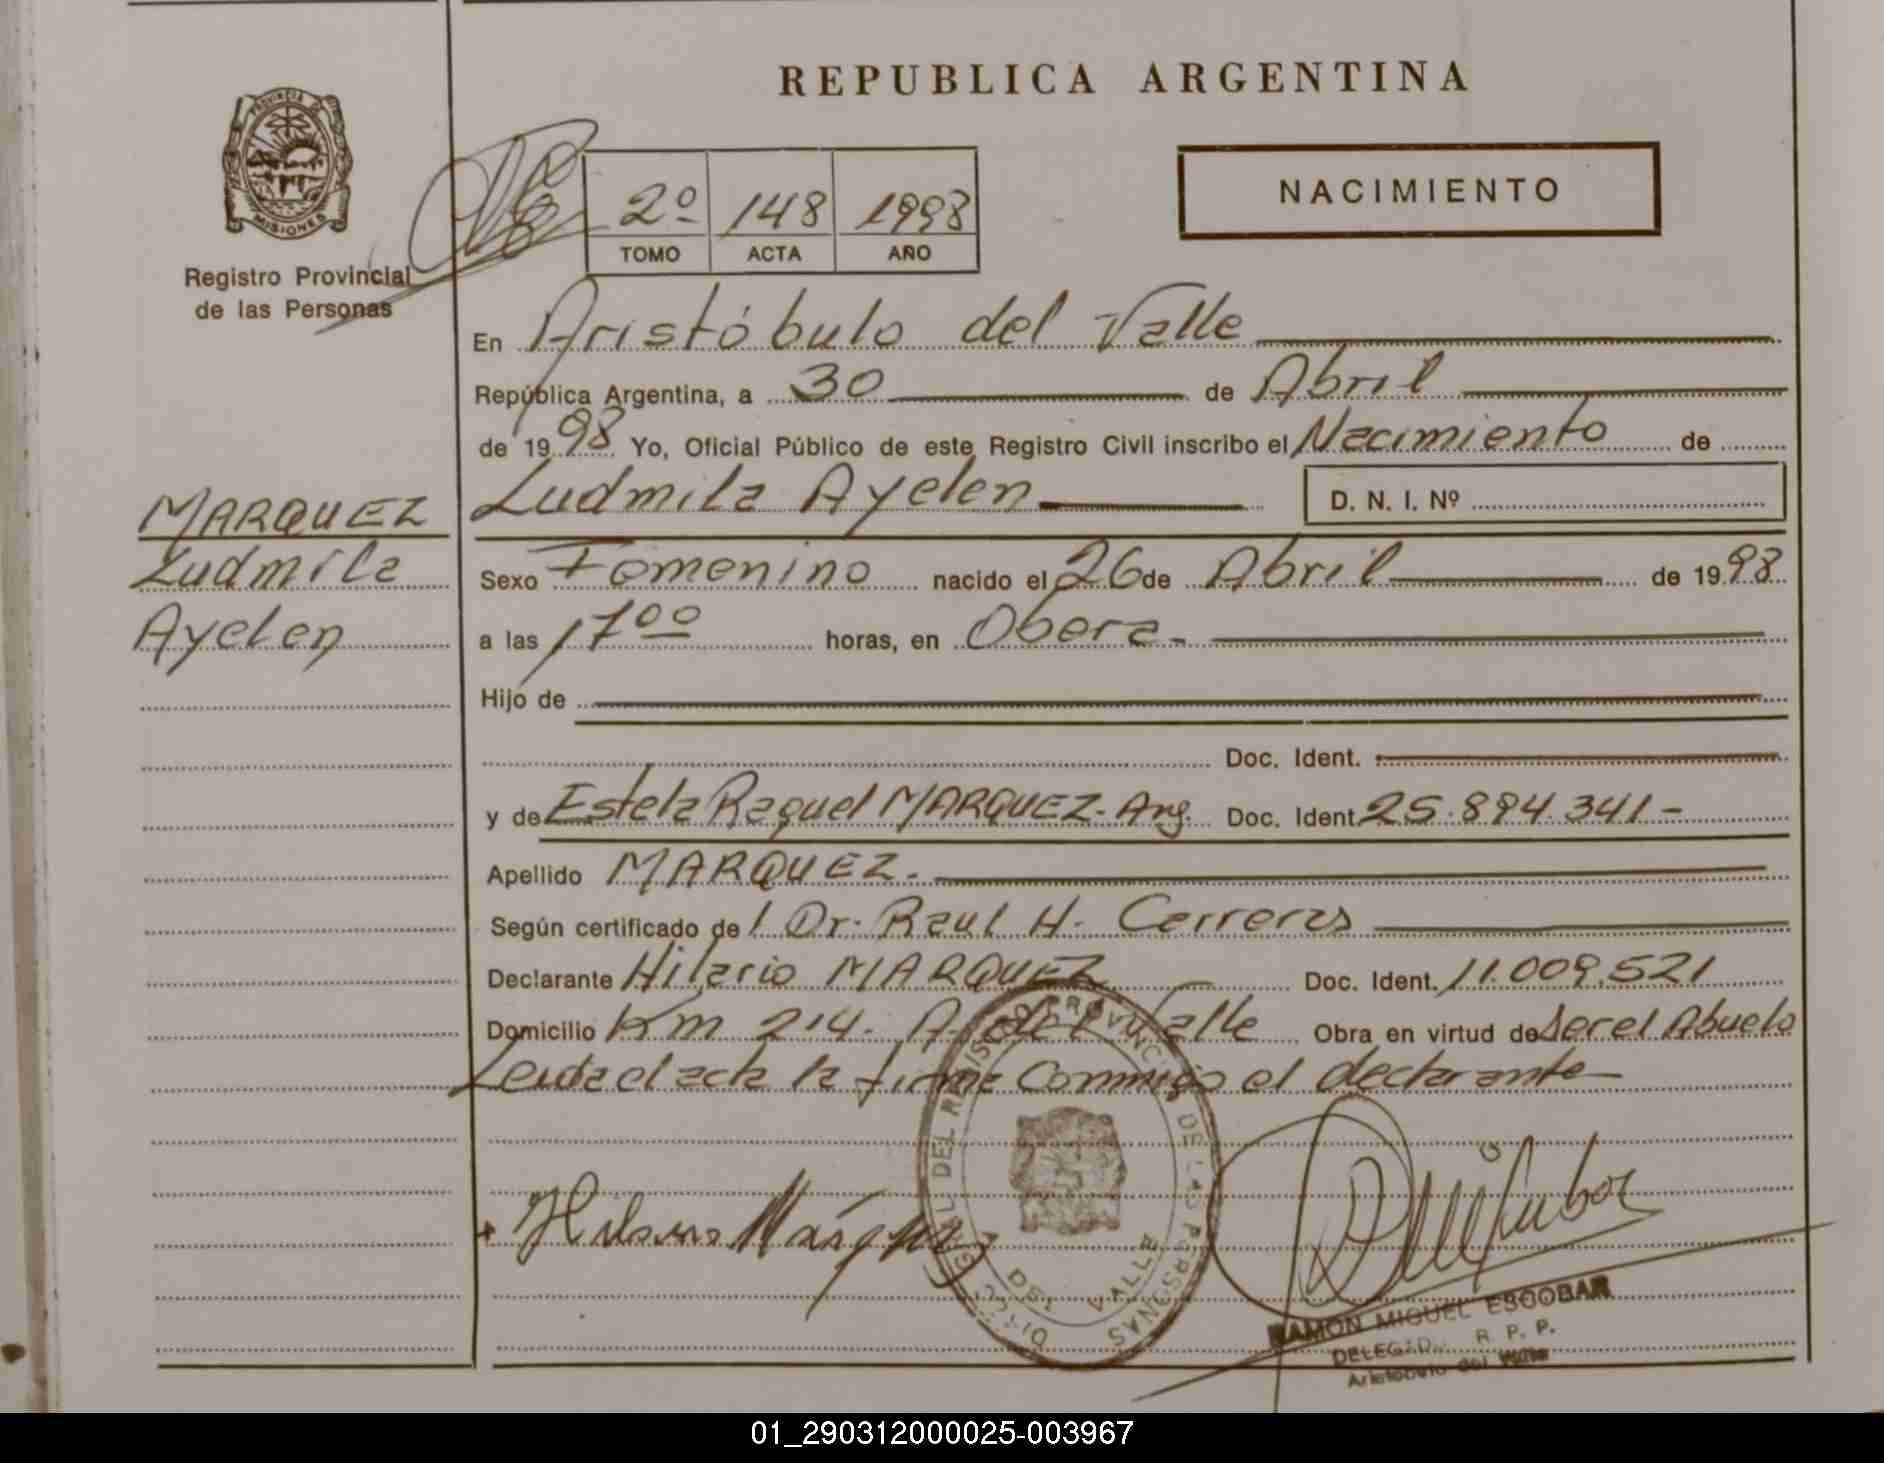 REPUBLICA ARGENTINA
PROVINCIA DE
MISIONES
Registro Provincial
de las Personas
2º 148 1998
TOMO ACTA AÑO
NACIMIENTO
En Aristóbulo del Valle
República Argentina, a 30 de Abril
de 1998 Yo, Oficial Público de este Registro Civil inscribo el Nacimiento de
MARQUEZ
Ludmila
Ayelen
Ludmila Ayelen D. N. I. Nº
Sexo Femenino nacido el 26 de Abril de 1998
a las 17 00 horas, en Obera.
Hijo de
Doc. Ident.
y de Estela Raquel MARQUEZ. Arg. Doc. Ident. 25.894.341-
Apellido MARQUEZ.
Según certificado de l Dr. Raul H. Carreras
Declarante Hilario MARQUEZ Doc. Ident. 11.009.521
Domicilio Km 214. A. del Valle Obra en virtud de ser el Abuelo
Leida el acta la firma Conmigo el declarante
DEL REGISTRO PROVINCIAL DE LAS PERSONAS
DEL VALLE
Hilario Márquez
RAMON MIGUEL ESCOBAR
R. P. P.
Aristobulo del Valle
01_290312000025-003967